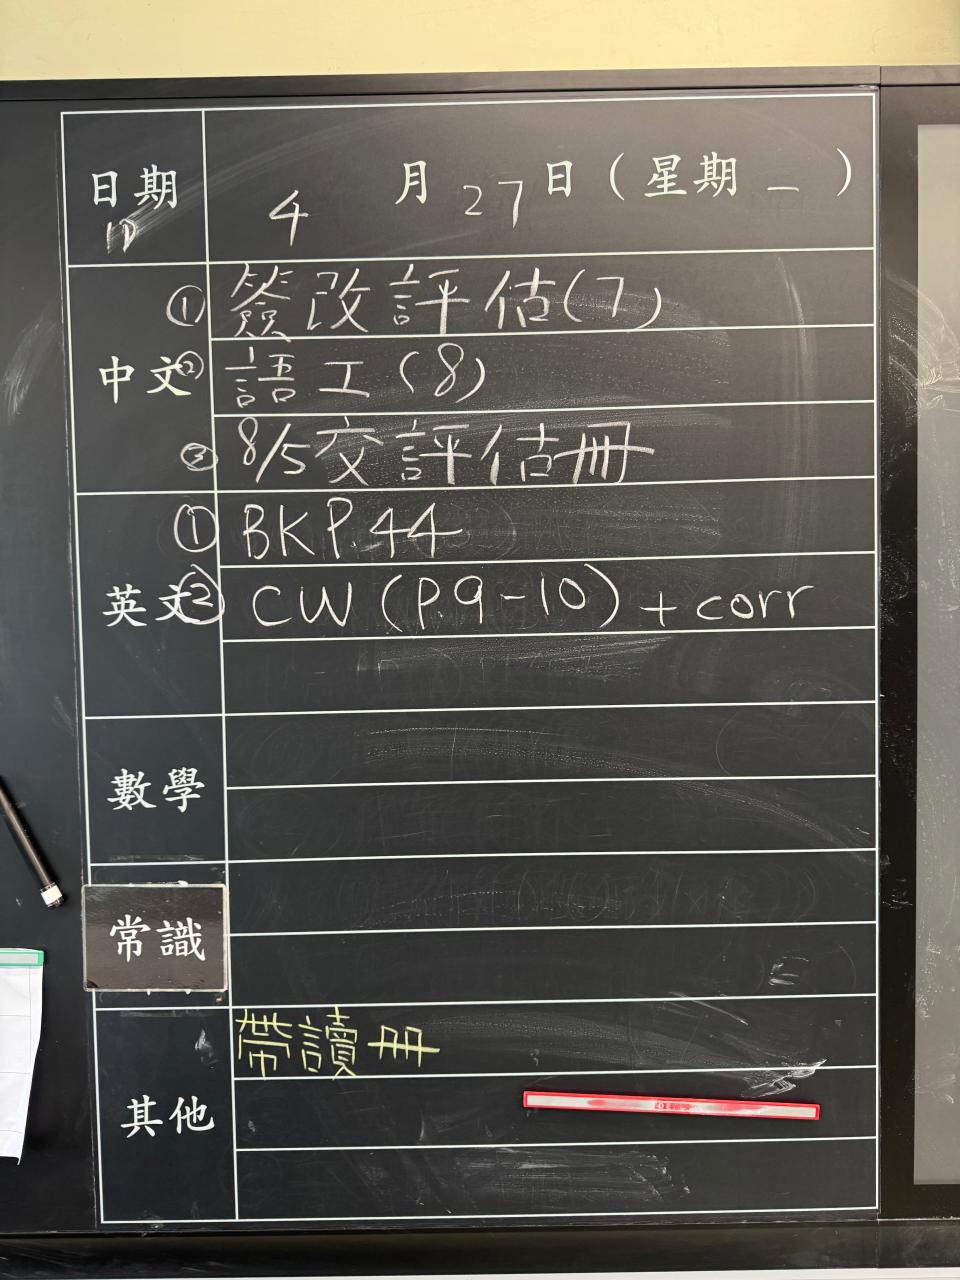 日期 4月27日(星期一)
中文
①簽改評估(7)
②語工(8)
③8/5交評估冊
英文
①BKP.44
②CW(P9-10)+corr
數學
常識
其他
帶讀冊